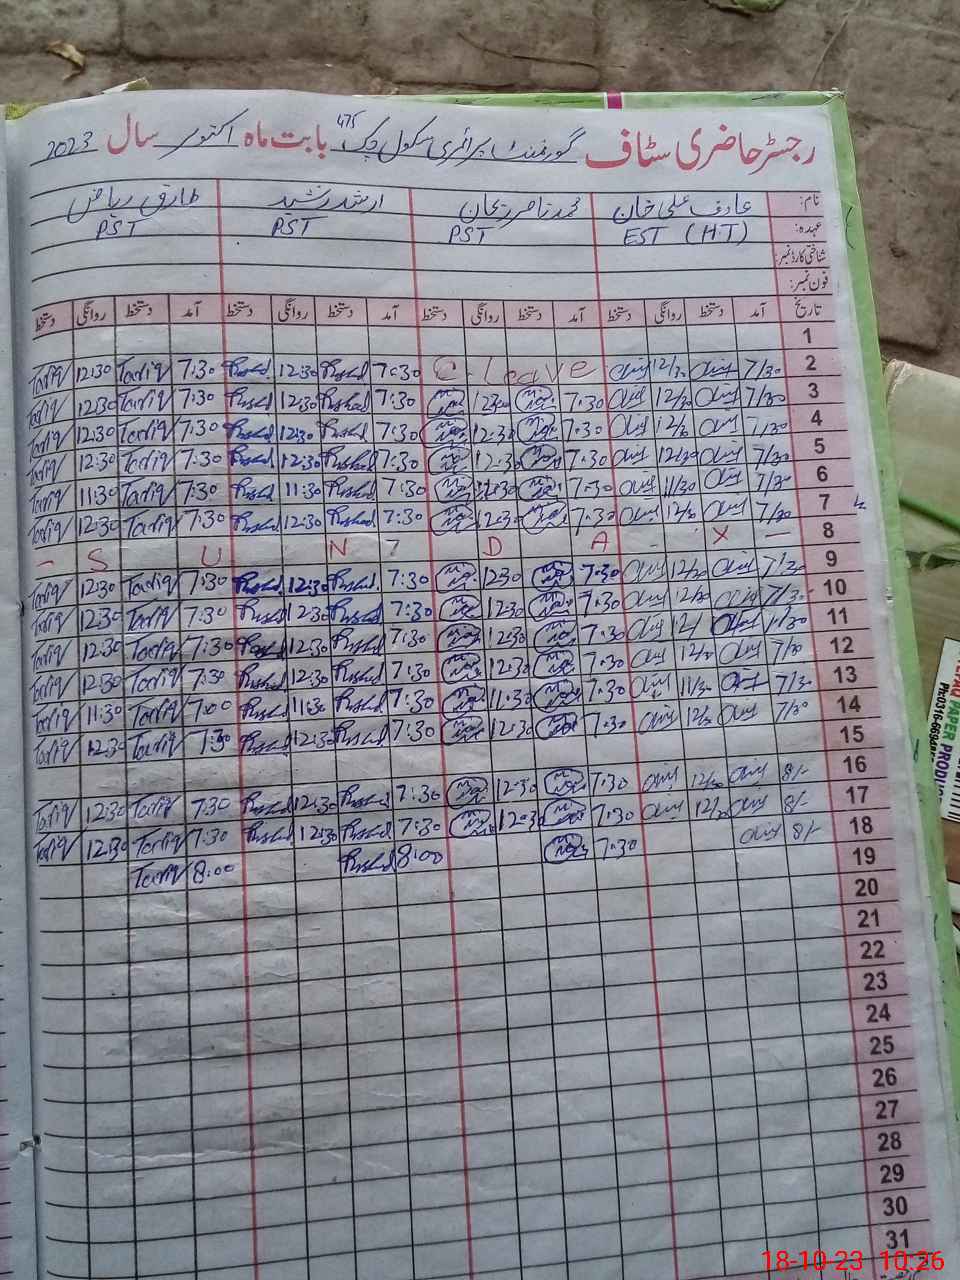 رجسٹر حاضری سٹاف گورنمنٹ پرائمری سکول چک 475 بابت ماہ اکتوبر سال 2023
نام: عارف علی خان محمد ناصر ریحان ارشد رشید طارق ریاض
عہدہ: EST (H.T) PST PST PST
شناختی کارڈ نمبر:
فون نمبر:
تاریخ آمد دستخط روانگی دستخط آمد دستخط روانگی دستخط آمد دستخط روانگی دستخط آمد دستخط روانگی دستخط
1
2 7/30 12/30 C. Leave 7:30 Rashid 12:30 Rashid 7:30 Tariq 12:30 Tariq
3 7/30 12/30 7:30 12:30 7:30 Rashid 12:30 Rashid 7:30 Tariq 12:30 Tariq
4 7/30 12/30 7:30 12:30 7:30 Rashid 12:30 Rashid 7:30 Tariq 12:30 Tariq
5 7/30 12/30 7:30 12:30 7:30 Rashid 12:30 Rashid 7:30 Tariq 12:30 Tariq
6 7/30 11/30 7:30 11:30 7:30 Rashid 11:30 Rashid 7:30 Tariq 11:30 Tariq
7 7/30 12/30 7:30 12:30 7:30 Rashid 12:30 Rashid 7:30 Tariq 12:30 Tariq
8 - S U N D A Y -
9 7/30 12/30 7:30 12:30 7:30 Rashid 12:30 Rashid 7:30 Tariq 12:30 Tariq
10 7/30 12/30 7:30 12:30 7:30 Rashid 12:30 Rashid 7:30 Tariq 12:30 Tariq
11 7/30 12/ 7:30 12:30 7:30 Rashid 12:30 Rashid 7:30 Tariq 12:30 Tariq
12 7/30 12/30 7:30 12:30 7:30 Rashid 12:30 Rashid 7:30 Tariq 12:30 Tariq
13 7/30 11/30 7:30 11:30 7:30 Rashid 11:30 Rashid 7:00 Tariq 11:30 Tariq
14 7/30 12/30 7:30 12:30 7:30 Rashid 12:30 Rashid 7:30 Tariq 12:30 Tariq
15
16 8/- 12/30 7:30 12:30 7:30 Rashid 12:30 Rashid 7:30 Tariq 12:30 Tariq
17 8/- 12/30 7:30 12:30 7:30 Rashid 12:30 Rashid 7:30 Tariq 12:30 Tariq
18 8/- 7:30 8:00 Rashid 8:00 Tariq
19
20
21
22
23
24
25
26
27
28
29
30
31
PAPER PRODU
18-10-23 10:26